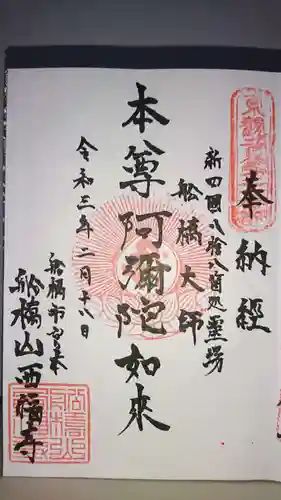 奉納経
新四國八拾八箇処霊場
船橋大師
本尊阿彌陀如来
令和三年二月十八日
船橋市宮本
船橋山西福寺